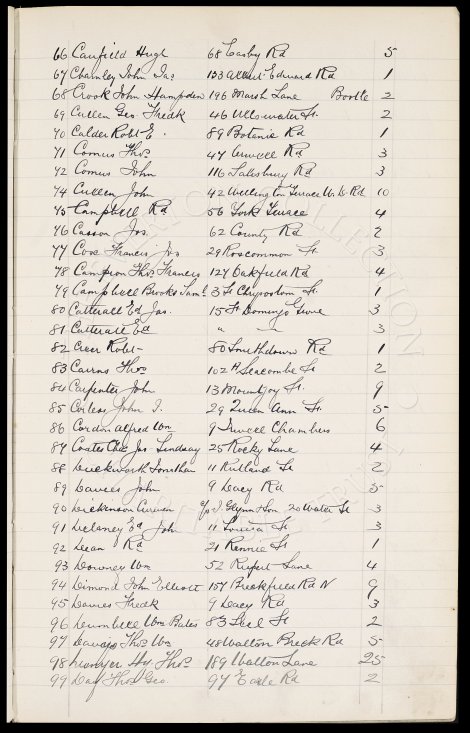 66 Canfield Hugh 68 Easby Rd 5
67 Charnley John Jas 133 Albert Edward Rd 1
68 Crook John Hampden 196 Marsh Lane Bootle 2
69 Cullen Geo. Fredk 46 Ullswater St. 2
70 Calder Robt E. 89 Botanic Rd 1
71 Comus Thos 47 Rd 3
72 Comus John 116 Salisbury Rd 3
74 Cullen John 42 Wellington Terrace Rd 10
75 Campbell Rd 56 York Terrace 4
76 Casson Jos. 62 County Rd 2
77 Francis Jos 29 Roscommon St 3
78 Campion Thos Francis 127 Oakfield Rd 4
79 Campbell Brooks Saml 3 St Chrysostom St. 1
80 Catterall Ed Jas. 15 St Domingo Grove 3
81 Catterall Ed " — 3
82 Robt 80 Smithdown Rd 1
83 Cairns Thos 102A Seacombe St 2
84 Carpenter John 13 Mountjoy St. 9
85 Corless John J. 29 Queen Ann St. 5
86 Cordon Alfred Wm 9 Irwell Chambers 6
87 Coates Chas Jos Lindsay 25 Rocky Lane 4
88 Duckworth Jonathan 11 Rutland St 2
89 Davies John 9 Dacy Rd 5
90 Dickenson c/o J. Glynn & Son 20 Water St 3
91 Delaney Ed John 11 Louisa St. 3
92 Dean Rd 21 Rennie St 1
93 Downey Wm 52 Rupert Lane 4
94 Dimond John Elliott 157 Breckfield Rd N 9
95 Davies Fredk 9 Dacy Rd 3
96 Dumbell Wm Bates 83 St 2
97 Thos Wm 48 Walton Breck Rd 5
98 Hy Thos 189 Walton Lane 25
99 Day Thos Geo 97 Earle Rd 2